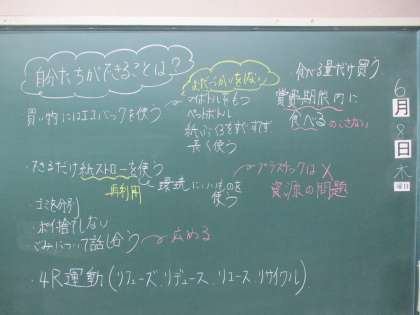 自分たちができることは?
買い物にはエコバックを使う
マイボトルをもつ
ペットボトル
紙ぶくろをすてずに
長く使う
食べる量だけ買う
賞味期限内に
食べる のこさない
・できるだけ紙ストローを使う
再利用
環境にいいものを
使う
プラスチックは×
資源の問題
・ゴミを分別
・ポイ捨てしない
・ごみについて話し合う
広める
・4R運動(リフューズ、リデュース、リユース、リサイクル)
6
月
8
日
木
曜日